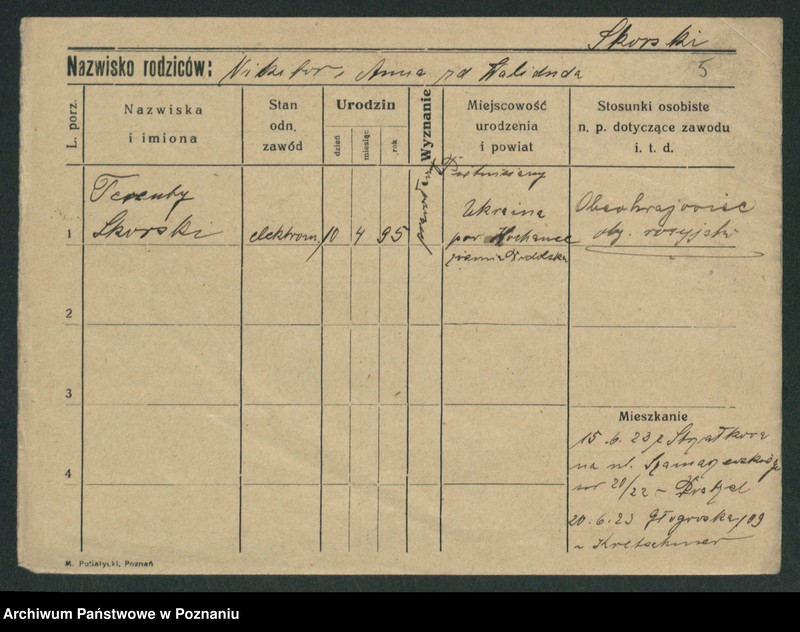 Skorski
Nazwisko rodziców: Nikifor i Anna zd
5
L. porz.
Nazwiska
i imiona
Stan
odn.
zawód
Urodzin
dzień
miesiąc
rok
Wyznanie
Miejscowość
urodzenia
i powiat
Stosunki osobiste
n. p. dotyczące zawodu
i. t. d.
1
Terenty
Skorski
elektrom.
10
4
95
Ukraina
pow
Podolska
Obcokrajowiec
ob. rosyjski
2
3
4
Mieszkanie
15.6.23 z Strzałkowa
na ul.
nr 20/22 –
20.6.23 Głogowska 109
Kretschmer
M. Putiatycki, Poznań
Archiwum Państwowe w Poznaniu